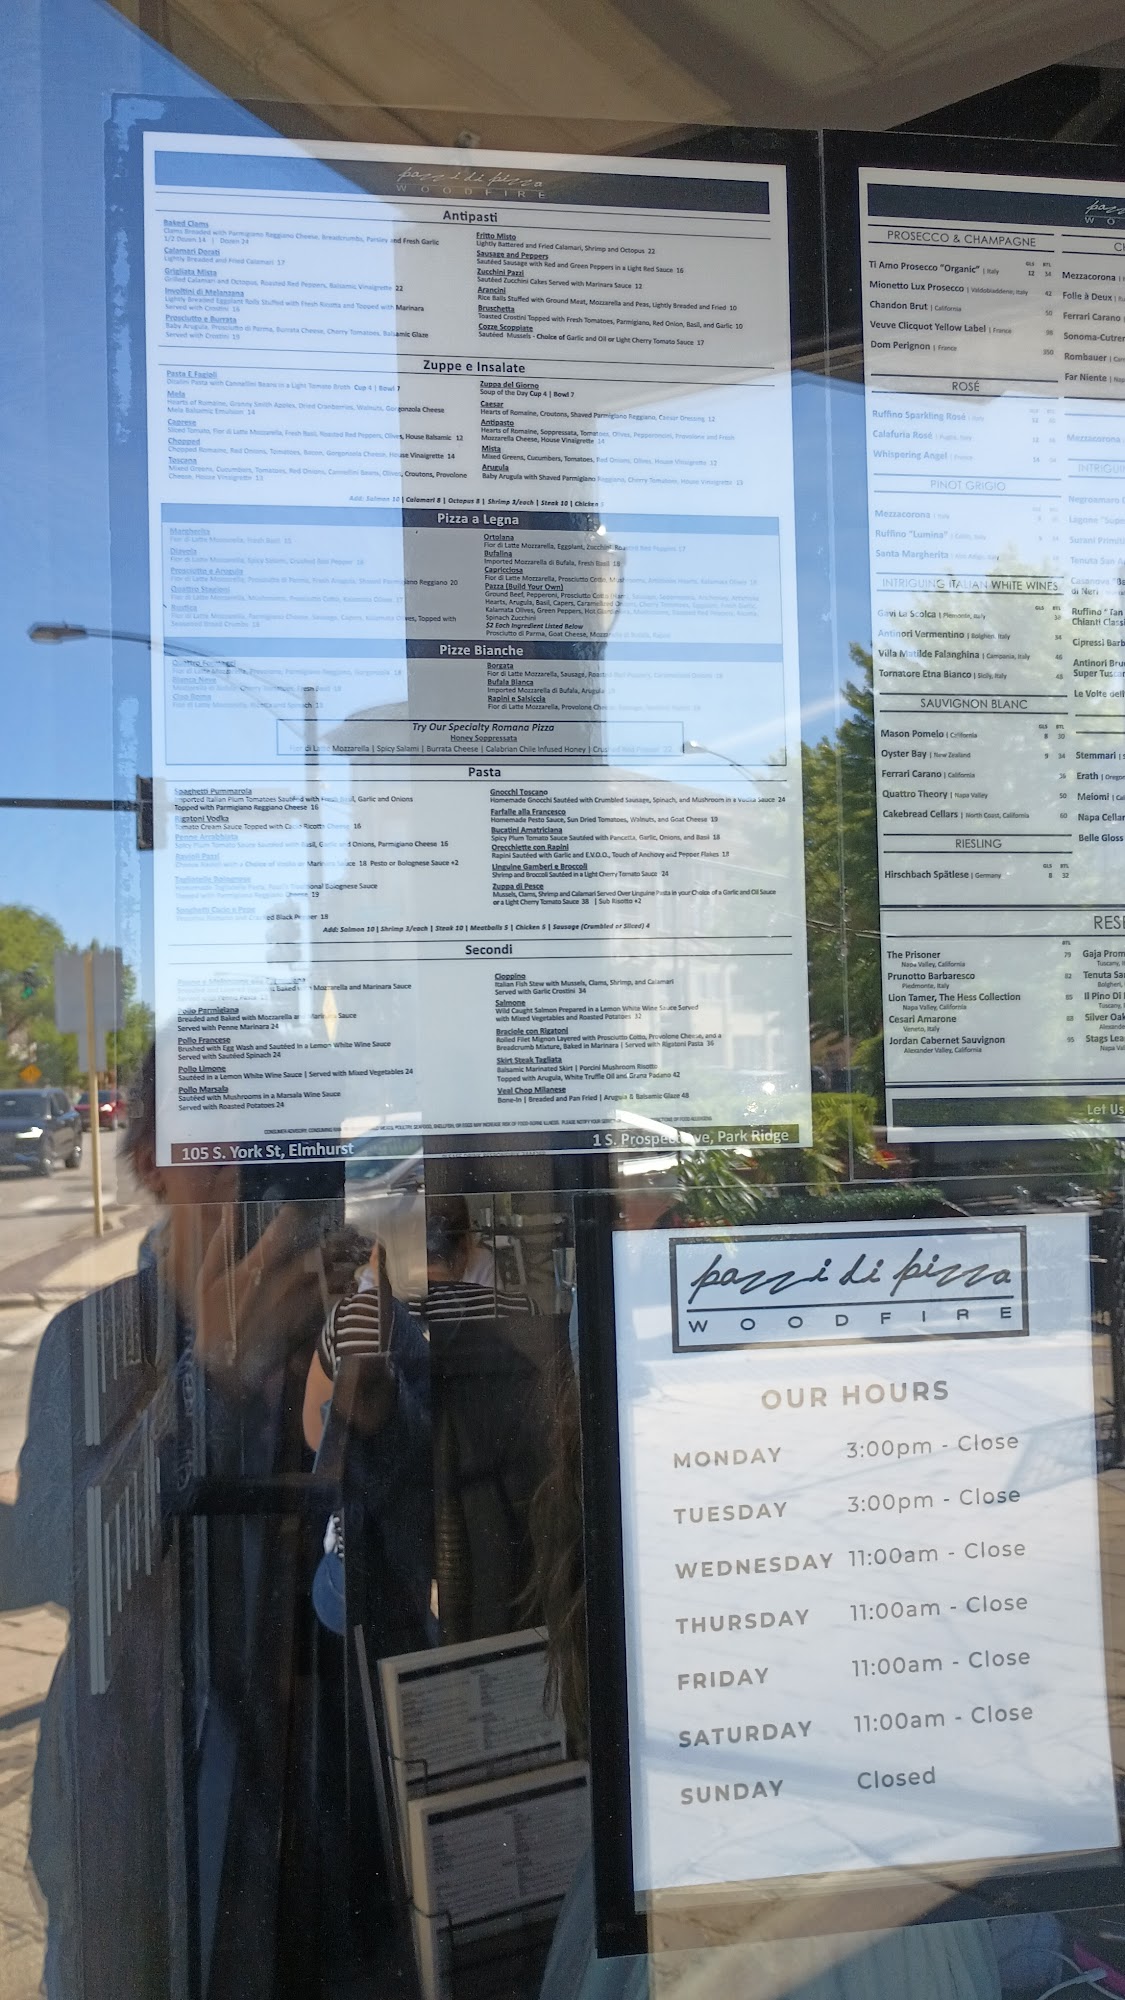 pazzi di pizza
WOODFIRE
Antipasti
Baked Clams
Clams Breaded with Parmigiano Reggiano Cheese, Breadcrumbs, Parsley and Fresh Garlic
1/2 Dozen 14 | Dozen 24
Calamari Dorati
Lightly Breaded and Fried Calamari 17
Grigliata Mista
Grilled Calamari and Octopus, Roasted Red Peppers, Balsamic Vinaigrette 22
Involtini di Melanzana
Lightly Breaded Eggplant Rolls Stuffed with Fresh Ricotta and Topped with Marinara
Served with Crostini 16
Prosciutto e Burrata
Baby Arugula, Prosciutto di Parma, Burrata Cheese, Cherry Tomatoes, Balsamic Glaze
Served with Crostini
Fritto Misto
Lightly Battered and Fried Calamari, Shrimp and Octopus 22
Sausage and Peppers
Sautéed Sausage with Red and Green Peppers in a Light Red Sauce 16
Zucchini Pazzi
Sautéed Zucchini Cakes Served with Marinara Sauce 12
Arancini
Rice Balls Stuffed with Ground Meat, Mozzarella and Peas, Lightly Breaded and Fried 10
Bruschetta
Toasted Crostini Topped with Fresh Tomatoes, Parmigiano, Red Onion, Basil, and Garlic 10
Cozze Scoppiate
Sautéed Mussels - Choice of Garlic and Oil or Light Cherry Tomato Sauce 17
Zuppe e Insalate
Pasta E Fagioli
Ditalini Pasta with Cannellini Beans in a Light Tomato Broth Cup 4 | Bowl 7
Mela
Hearts of Romaine, Granny Smith Apples, Dried Cranberries, Walnuts, Gorgonzola Cheese
Mela Balsamic Emulsion 14
Caprese
Sliced Tomato, Fior di Latte Mozzarella, Fresh Basil, Roasted Red Peppers, Olives, House Balsamic 12
Chopped
Chopped Romaine, Red Onions, Tomatoes, Bacon, Gorgonzola Cheese, House Vinaigrette 14
Toscana
Mixed Greens, Cucumbers, Tomatoes, Red Onions, Cannellini Beans, Olives, Croutons, Provolone
Cheese, House Vinaigrette 13
Zuppa del Giorno
Soup of the Day Cup 4 | Bowl 7
Caesar
Hearts of Romaine, Croutons, Shaved Parmigiano Reggiano, Caesar Dressing 12
Antipasto
Hearts of Romaine, Soppressata, Tomatoes, Olives, Pepperoncini, Provolone and Fresh
Mozzarella Cheese, House Vinaigrette 14
Mista
Mixed Greens, Cucumbers, Tomatoes, Red Onions, Olives, House Vinaigrette 12
Arugula
Baby Arugula with Shaved Parmigiano Reggiano, Cherry Tomatoes, House Vinaigrette 13
Add: Salmon 10 | Calamari 8 | Octopus 8 | Shrimp 3/each | Steak 10 | Chicken 5
Pizza a Legna
Margherita
Fior di Latte Mozzarella, Fresh Basil 15
Diavola
Fior di Latte Mozzarella, Spicy Salami, Crushed Red Pepper 18
Prosciutto e Arugula
Fior di Latte Mozzarella, Prosciutto di Parma, Fresh Arugula, Shaved Parmigiano Reggiano 20
Quattro Stagioni
Rustica
Topped with
Ortolana
Fior di Latte Mozzarella, Eggplant, Zucchini, Roasted Red Peppers 17
Bufalina
Imported Mozzarella di Bufala, Fresh Basil 18
Capricciosa
Fior di Latte Mozzarella, Prosciutto Cotto, Mushrooms, Artichoke Hearts, Kalamata Olives 18
Pazza (Build Your Own)
Ground Beef, Pepperoni, Prosciutto Cotto
Hearts, Arugula, Basil, Capers, Caramelized Onions, Cherry Tomatoes, Eggplant, Fresh Garlic,
Kalamata Olives, Green Peppers, Hot
Spinach Zucchini
$2 Each Ingredient Listed Below
Prosciutto di Parma, Goat Cheese,
Pizze Bianche
Quattro Formaggi
Bianca Neve
Mozzarella di Bufala, Cherry Tomatoes, Fresh Basil 18
Ciao Roma
Fior di Latte Mozzarella, Ricotta and Spinach
Borgata
Fior di Latte Mozzarella, Sausage, Roasted Red Peppers, Caramelized Onions 18
Bufala Bianca
Imported Mozzarella di Bufala, Arugula
Rapini e Salsiccia
Fior di Latte Mozzarella, Provolone
Try Our Specialty Romana Pizza
Honey Soppressata
Fior di Latte Mozzarella | Spicy Salami | Burrata Cheese | Calabrian Chile Infused Honey | Crushed Red Pepper 22
Pasta
Spaghetti Pummarola
Imported Italian Plum Tomatoes Sautéed with Fresh Basil, Garlic and Onions
Topped with Parmigiano Reggiano Cheese 16
Rigatoni Vodka
Tomato Cream Sauce Topped with Ricotta Cheese 16
Penne Arrabbiata
Spicy Plum Tomato Sauce Sautéed with Basil, Garlic and Onions, Parmigiano Cheese 16
Ravioli Pazzi
Cheese Ravioli with a Choice of Vodka or Marinara Sauce 18 Pesto or Bolognese Sauce +2
Tagliatelle Bolognese
Homemade Tagliatelle Pasta, Pazzi's Traditional Bolognese Sauce
Topped with Parmigiano Cheese 19
Spaghetti Cacio e Pepe
Pecorino Romano and Cracked Black Pepper 18
Gnocchi Toscano
Homemade Gnocchi Sautéed with Crumbled Sausage, Spinach, and Mushroom in a Vodka Sauce 24
Farfalle alla Francesco
Homemade Pesto Sauce, Sun Dried Tomatoes, Walnuts, and Goat Cheese 19
Bucatini Amatriciana
Spicy Plum Tomato Sauce Sautéed with Pancetta, Garlic, Onions, and Basil 18
Orecchiette con Rapini
Rapini Sautéed with Garlic and E.V.O.O., Touch of Anchovy and Pepper Flakes 18
Linguine Gamberi e Broccoli
Shrimp and Broccoli Sautéed in a Light Cherry Tomato Sauce 24
Zuppa di Pesce
Mussels, Clams, Shrimp, and Calamari Served Over Linguine Pasta in your Choice of a Garlic and Oil Sauce
or a Light Cherry Tomato Sauce 38 | Sub Risotto +2
Add: Salmon 10 | Shrimp 3/each | Steak 10 | Meatballs 5 | Chicken 5 | Sausage (Crumbled or Sliced) 4
Secondi
Baked with Mozzarella and Marinara Sauce
Pollo Parmigiana
Breaded and Baked with Mozzarella and Marinara Sauce
Served with Penne Marinara 24
Pollo Francese
Brushed with Egg Wash and Sautéed in a Lemon White Wine Sauce
Served with Sautéed Spinach 24
Pollo Limone
Sautéed in a Lemon White Wine Sauce | Served with Mixed Vegetables 24
Pollo Marsala
Sautéed with Mushrooms in a Marsala Wine Sauce
Served with Roasted Potatoes 24
Cioppino
Italian Fish Stew with Mussels, Clams, Shrimp, and Calamari
Served with Garlic Crostini 34
Salmone
Wild Caught Salmon Prepared in a Lemon White Wine Sauce Served
with Mixed Vegetables and Roasted Potatoes 32
Braciole con Rigatoni
Rolled Filet Mignon Layered with Prosciutto Cotto, Provolone Cheese, and a
Breadcrumb Mixture, Baked in Marinara | Served with Rigatoni Pasta 36
Skirt Steak Tagliata
Balsamic Marinated Skirt | Porcini Mushroom Risotto
Topped with Arugula, White Truffle Oil and Grana Padano 42
Veal Chop Milanese
Bone-In | Breaded and Pan Fried | Arugula & Balsamic Glaze 48
105 S. York St, Elmhurst
1 S. Prospect Ave, Park Ridge
PROSECCO & CHAMPAGNE
GLS BTL
Ti Amo Prosecco "Organic" | Italy 12
Mionetto Lux Prosecco | Valdobbiadene, Italy 42
Chandon Brut | California 50
Veuve Clicquot Yellow Label | France 98
Dom Perignon | France 350
ROSÉ
Ruffino Sparkling Rosé
Calafuria Rosé
Whispering Angel
PINOT GRIGIO
Mezzacorona | Italy
Ruffino "Lumina"
Santa Margherita
INTRIGUING ITALIAN WHITE WINES
Gavi La Scolca | Piemonte, Italy
Antinori Vermentino | Bolgheri, Italy 54
Villa Matilde Falanghina | Campania, Italy 46
Tornatore Etna Bianco | Sicily, Italy 45
SAUVIGNON BLANC
GLS BTL
Mason Pomelo | California 8 30
Oyster Bay | New Zealand 9 34
Ferrari Carano | California 36
Quattro Theory | Napa Valley 50
Cakebread Cellars | North Coast, California 60
RIESLING
GLS BTL
Hirschbach Spätlese | Germany 8 32
RESE
BTL
The Prisoner 79
Napa Valley, California
Prunotto Barbaresco 82
Piedmonte, Italy
Lion Tamer, The Hess Collection 85
Napa Valley, California
Cesari Amarone 88
Veneto, Italy
Jordan Cabernet Sauvignon 95
Alexander Valley, California
Mezzacorona
Folle à Deux
Ferrari Carano
Sonoma-Cutrer
Rombauer
Far Niente
Mezzacorona
INTRIGUI
Negroamaro
Lagone "Super
Surani Primiti
Tenuta San
di Neri
Ruffino "Tan
Chianti Classi
Cipressi Barb
Antinori Brun
Super Tuscan
Le Volte dell
Stemmari
Erath | Oregon
Meiomi
Napa Cellar
Belle Gloss
Gaja Prom
Tenuta Sa
Il Pino Di
Silver Oak
Stags Lea
Let Us
pazzi di pizza
WOODFIRE
OUR HOURS
MONDAY 3:00pm - Close
TUESDAY 3:00pm - Close
WEDNESDAY 11:00am - Close
THURSDAY 11:00am - Close
FRIDAY 11:00am - Close
SATURDAY 11:00am - Close
SUNDAY Closed